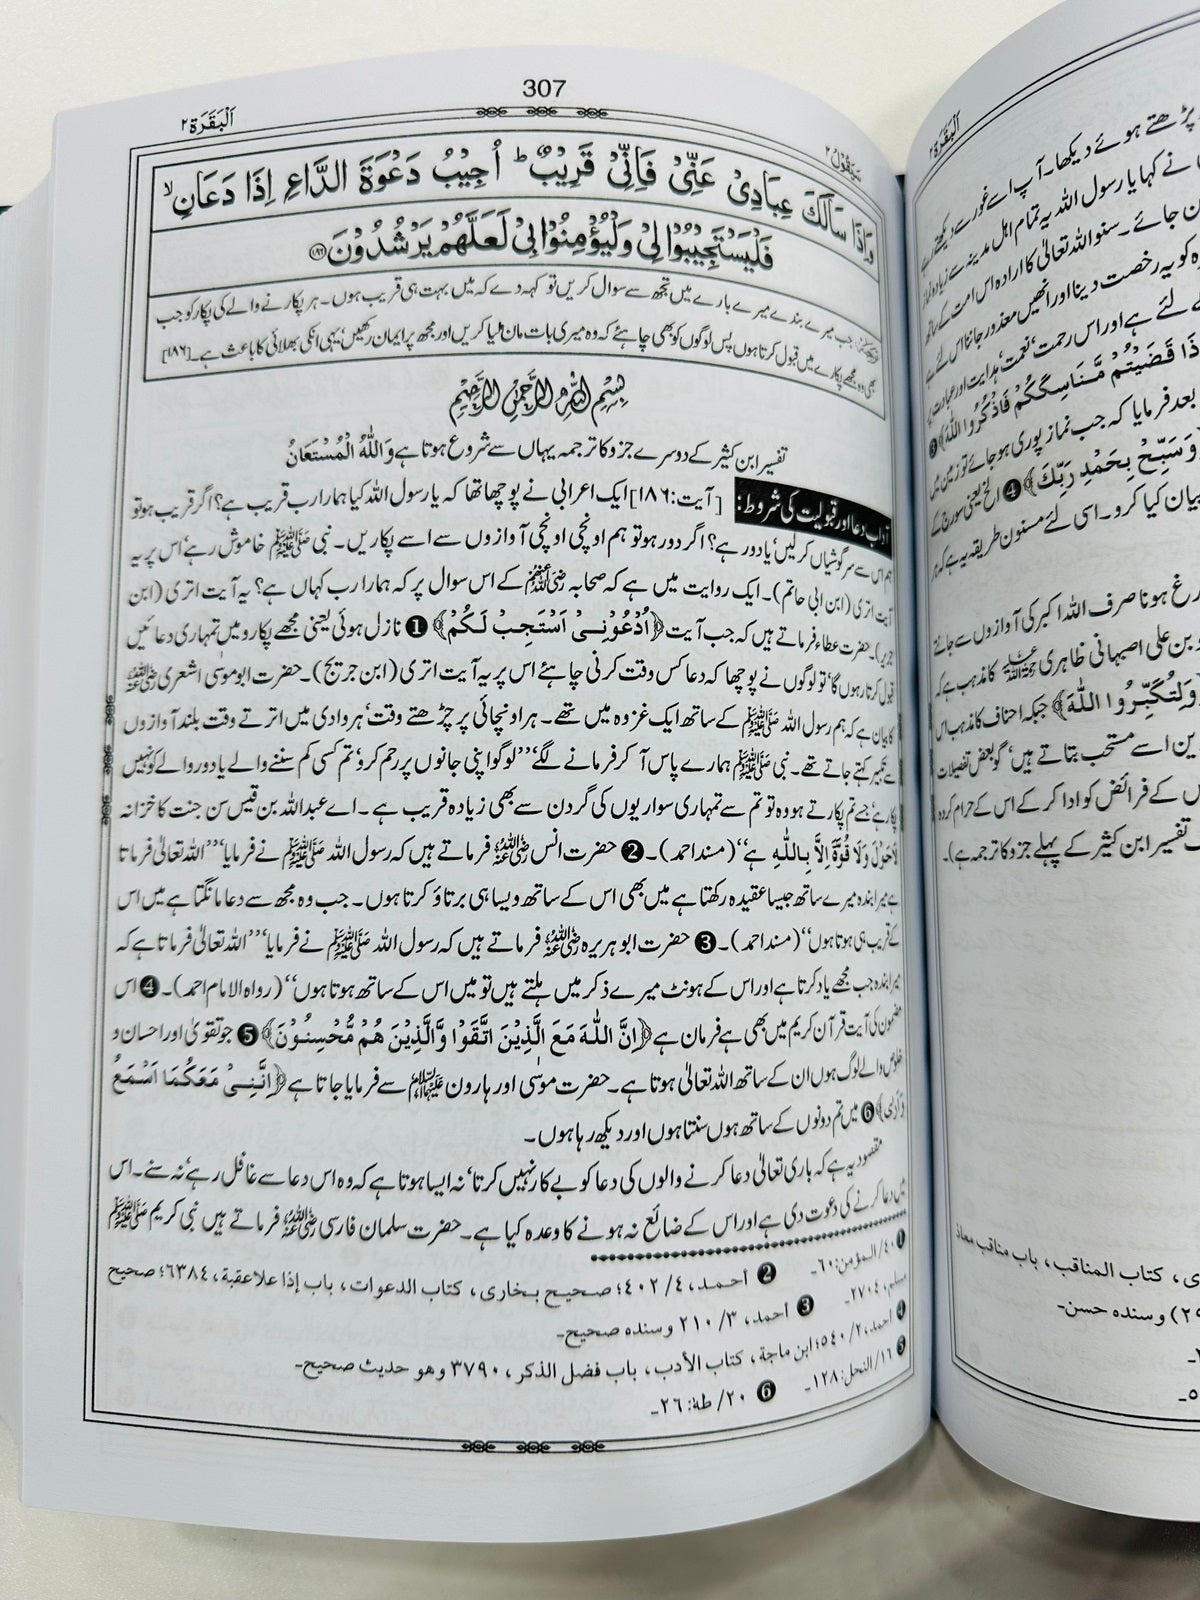 307
اَلْبَقَرَة ٢
سَيَقُوْلُ ٢
وَاِذَا سَاَلَكَ عِبَادِيْ عَنِّيْ فَاِنِّيْ قَرِيْبٌ ؕ اُجِيْبُ دَعْوَةَ الدَّاعِ اِذَا دَعَانِ ۙ
فَلْيَسْتَجِيْبُوْا لِيْ وَلْيُؤْمِنُوْا بِيْ لَعَلَّهُمْ يَرْشُدُوْنَ ﴿۱۸۶﴾
جب میرے بندے میرے بارے میں تجھ سے سوال کریں تو کہہ دے کہ میں بہت ہی قریب ہوں۔ ہر پکارنے والے کی پکار کو جب
بھی وہ مجھے پکارے میں قبول کرتا ہوں پس لوگوں کو بھی چاہئے کہ وہ میری بات مان لیا کریں اور مجھ پر ایمان رکھیں، یہی انکی بھلائی کا باعث ہے۔ [۱۸۶]
بِسْمِ اللّٰهِ الرَّحْمٰنِ الرَّحِيْمِ
تفسیر ابن کثیر کے دوسرے جزو کا ترجمہ یہاں سے شروع ہوتا ہے وَاللّٰهُ الْمُسْتَعَانُ
آداب دعا اور قبولیت کی شروط: [آیت:۱۸۶] ایک اعرابی نے پوچھا تھا کہ یا رسول اللہ کیا ہمارا رب قریب ہے؟ اگر قریب ہو تو
ہم اس سے سرگوشیاں کر لیں، یا دور ہے؟ اگر دور ہو تو ہم اونچی اونچی آوازوں سے اسے پکاریں۔ نبی ﷺ خاموش رہے، اس پر یہ
آیت اتری (ابن ابی حاتم)۔ ایک روایت میں ہے کہ صحابہ رضی اللہ عنہم کے اس سوال پر کہ ہمارا رب کہاں ہے؟ یہ آیت اتری (ابن
جریر)۔ حضرت عطاء فرماتے ہیں کہ جب آیت ﴿اُدْعُوْنِيْ اَسْتَجِبْ لَكُمْ﴾ ❶ نازل ہوئی یعنی مجھے پکارو میں تمہاری دعائیں
قبول کرتا رہوں گا، تو لوگوں نے پوچھا کہ دعا کس وقت کرنی چاہئے اس پر یہ آیت اتری (ابن جریج)۔ حضرت ابو موسیٰ اشعری رضی اللہ عنہ
کا بیان ہے کہ ہم رسول اللہ ﷺ کے ساتھ ایک غزوہ میں تھے۔ ہر اونچائی پر چڑھتے وقت، ہر وادی میں اترتے وقت بلند آوازوں
سے تکبیر کہتے جاتے تھے۔ نبی ﷺ ہمارے پاس آ کر فرمانے لگے، ’’لوگو اپنی جانوں پر رحم کرو، تم کسی کم سننے والے یا دور والے کو نہیں
پکار رہے، جسے تم پکارتے ہو وہ تو تم سے تمہاری سواریوں کی گردن سے بھی زیادہ قریب ہے۔ اے عبداللہ بن قیس سن جنت کا خزانہ
لَاحَوْلَ وَلَا قُوَّةَ اِلَّا بِاللّٰهِ ہے‘‘ (مسند احمد)۔ ❷ حضرت انس رضی اللہ عنہ فرماتے ہیں کہ رسول اللہ ﷺ نے فرمایا، ’’اللہ تعالیٰ فرماتا
ہے میرا بندہ میرے ساتھ جیسا عقیدہ رکھتا ہے میں بھی اس کے ساتھ ویسا ہی برتاؤ کرتا ہوں۔ جب وہ مجھ سے دعا مانگتا ہے میں اس
کے قریب ہی ہوتا ہوں‘‘ (مسند احمد)۔ ❸ حضرت ابوہریرہ رضی اللہ عنہ فرماتے ہیں کہ رسول اللہ ﷺ نے فرمایا، ’’اللہ تعالیٰ فرماتا ہے کہ
میرا بندہ جب مجھے یاد کرتا ہے اور اس کے ہونٹ میرے ذکر میں ہلتے ہیں تو میں اس کے ساتھ ہوتا ہوں‘‘ (رواہ الامام احمد)۔ ❹ اس
مضمون کی آیت قرآن کریم میں بھی ہے فرمان ہے ﴿اِنَّ اللّٰهَ مَعَ الَّذِيْنَ اتَّقَوْا وَّالَّذِيْنَ هُمْ مُّحْسِنُوْنَ﴾ ❺ جو تقویٰ اور احسان و
خلوص والے لوگ ہوں ان کے ساتھ اللہ تعالیٰ ہوتا ہے۔ حضرت موسیٰ اور ہارون علیہما السلام سے فرمایا جاتا ہے ﴿اِنَّنِيْ مَعَكُمَا اَسْمَعُ
وَاَرٰى﴾ ❻ میں تم دونوں کے ساتھ ہوں سنتا ہوں اور دیکھ رہا ہوں۔
مقصود یہ ہے کہ باری تعالیٰ دعا کرنے والوں کی دعا کو بے کار نہیں کرتا، نہ ایسا ہوتا ہے کہ وہ اس دعا سے غافل رہے، نہ سنے۔ اس
میں دعا کرنے کی دعوت دی ہے اور اس کے ضائع نہ ہونے کا وعدہ کیا ہے۔ حضرت سلمان فارسی رضی اللہ عنہ فرماتے ہیں نبی کریم ﷺ
❶ ٤٠/ المؤمن:٦٠۔ ❷ أحمد، ٤/ ٤٠٢؛ صحيح بخاری، كتاب الدعوات، باب إذا علا عقبة، ٦٣٨٤؛ صحيح
مسلم، ٢٧٠٤۔ ❸ أحمد، ٣/ ٢١٠ وسنده صحيح۔
❹ أحمد، ٢/ ٥٤٠؛ ابن ماجة، كتاب الأدب، باب فضل الذكر، ٣٧٩٠ وهو حديث صحيح۔
❺ ١٦/ النحل:١٢٨۔ ❻ ٢٠/ طه:٢٦۔
اَلْبَقَرَة ٢
پڑھتے ہوئے دیکھا۔ آپ اسے غور سے دیکھتے رہے
نے کہا یا رسول اللہ یہ تمام اہل مدینہ سے زیادہ نماز
جائے۔ سنو اللہ تعالیٰ کا ارادہ اس امت کے ساتھ
کو یہ رخصت دینا اور انھیں معذور جاننا اس لئے ہے
کے لئے ہے اور اس رحمت، نعمت، ہدایت اور عبادت پر
قَضَيْتُمْ مَّنَاسِكَكُمْ فَاذْكُرُوا اللّٰهَ﴾
بعد فرمایا کہ جب نماز پوری ہو جائے تو زمین میں
وَسَبِّحْ بِحَمْدِ رَبِّكَ﴾ ❹ الخ یعنی سورج کے
بیان کیا کرو۔ اسی لئے مسنون طریقہ یہ ہے کہ ہر
فارغ ہونا صرف اللہ اکبر کی آوازوں سے جانتے
بن علی اصبہانی ظاہری رحمہ اللہ کا مذہب ہے کہ
﴿وَلِتُكَبِّرُوا اللّٰهَ﴾ جبکہ احناف کا مذہب اس
اسے مستحب بتاتے ہیں، گو بعض تفصیلات
کے فرائض کو ادا کر کے اس کے حرام کردہ
تفسیر ابن کثیر کے پہلے جزو کا ترجمہ ہے)۔
كتاب المناقب، باب مناقب معاذ
وسنده حسن۔